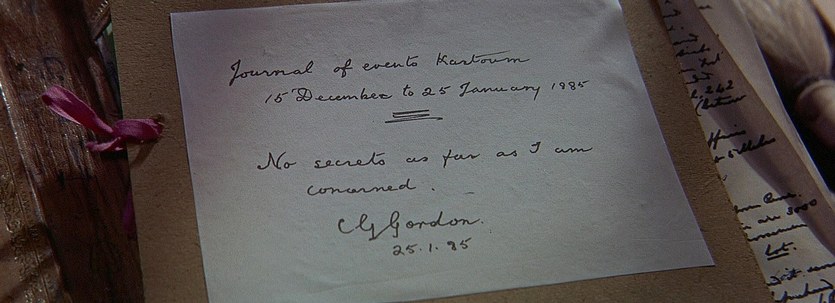 Journal of events Kartoum
15 December to 25 January 1885
No secrets as far as I am
concerned.
C G Gordon.
25.1.85
242
are 3000
lost.